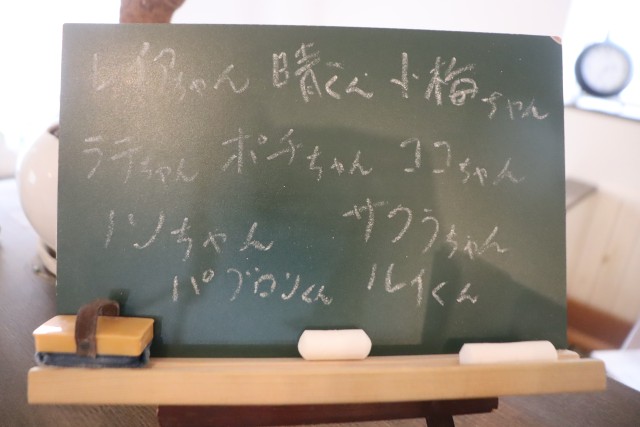 レイアちゃん 晴くん 小梅ちゃん
ラテちゃん ポチちゃん ココちゃん
ノンちゃん サクラちゃん
パブロンくん ルイくん